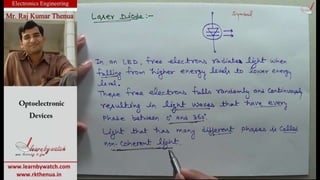 Electronics Engineering
Mr. Raj Kumar Thenua
Optoelectronic
Devices
Learnbywatch
www.learnbywatch.com
www.rkthenua.in
Laser Diode :-
Symbol
In an LED, free electrons radiate light when
falling from higher energy levels to lower energy
level.
These free electrons falls randomly and continuously
resulting in light waves that have every
Phase between 0° and 360°
Light that has many different phases is called
non-coherent light.